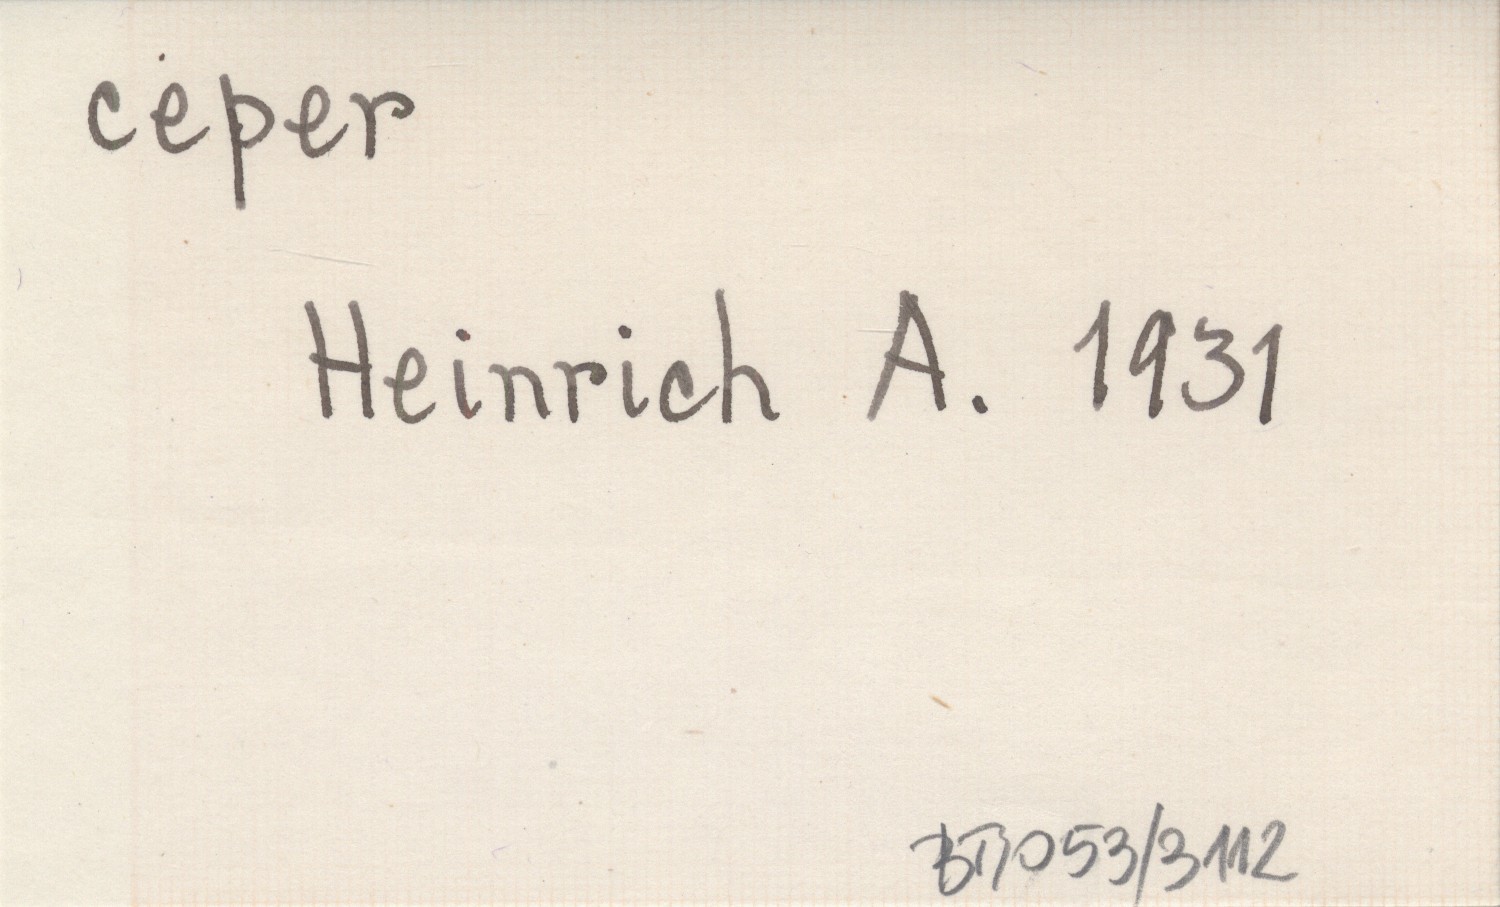 ceper
Heinrich A. 1931
ВП053/3112